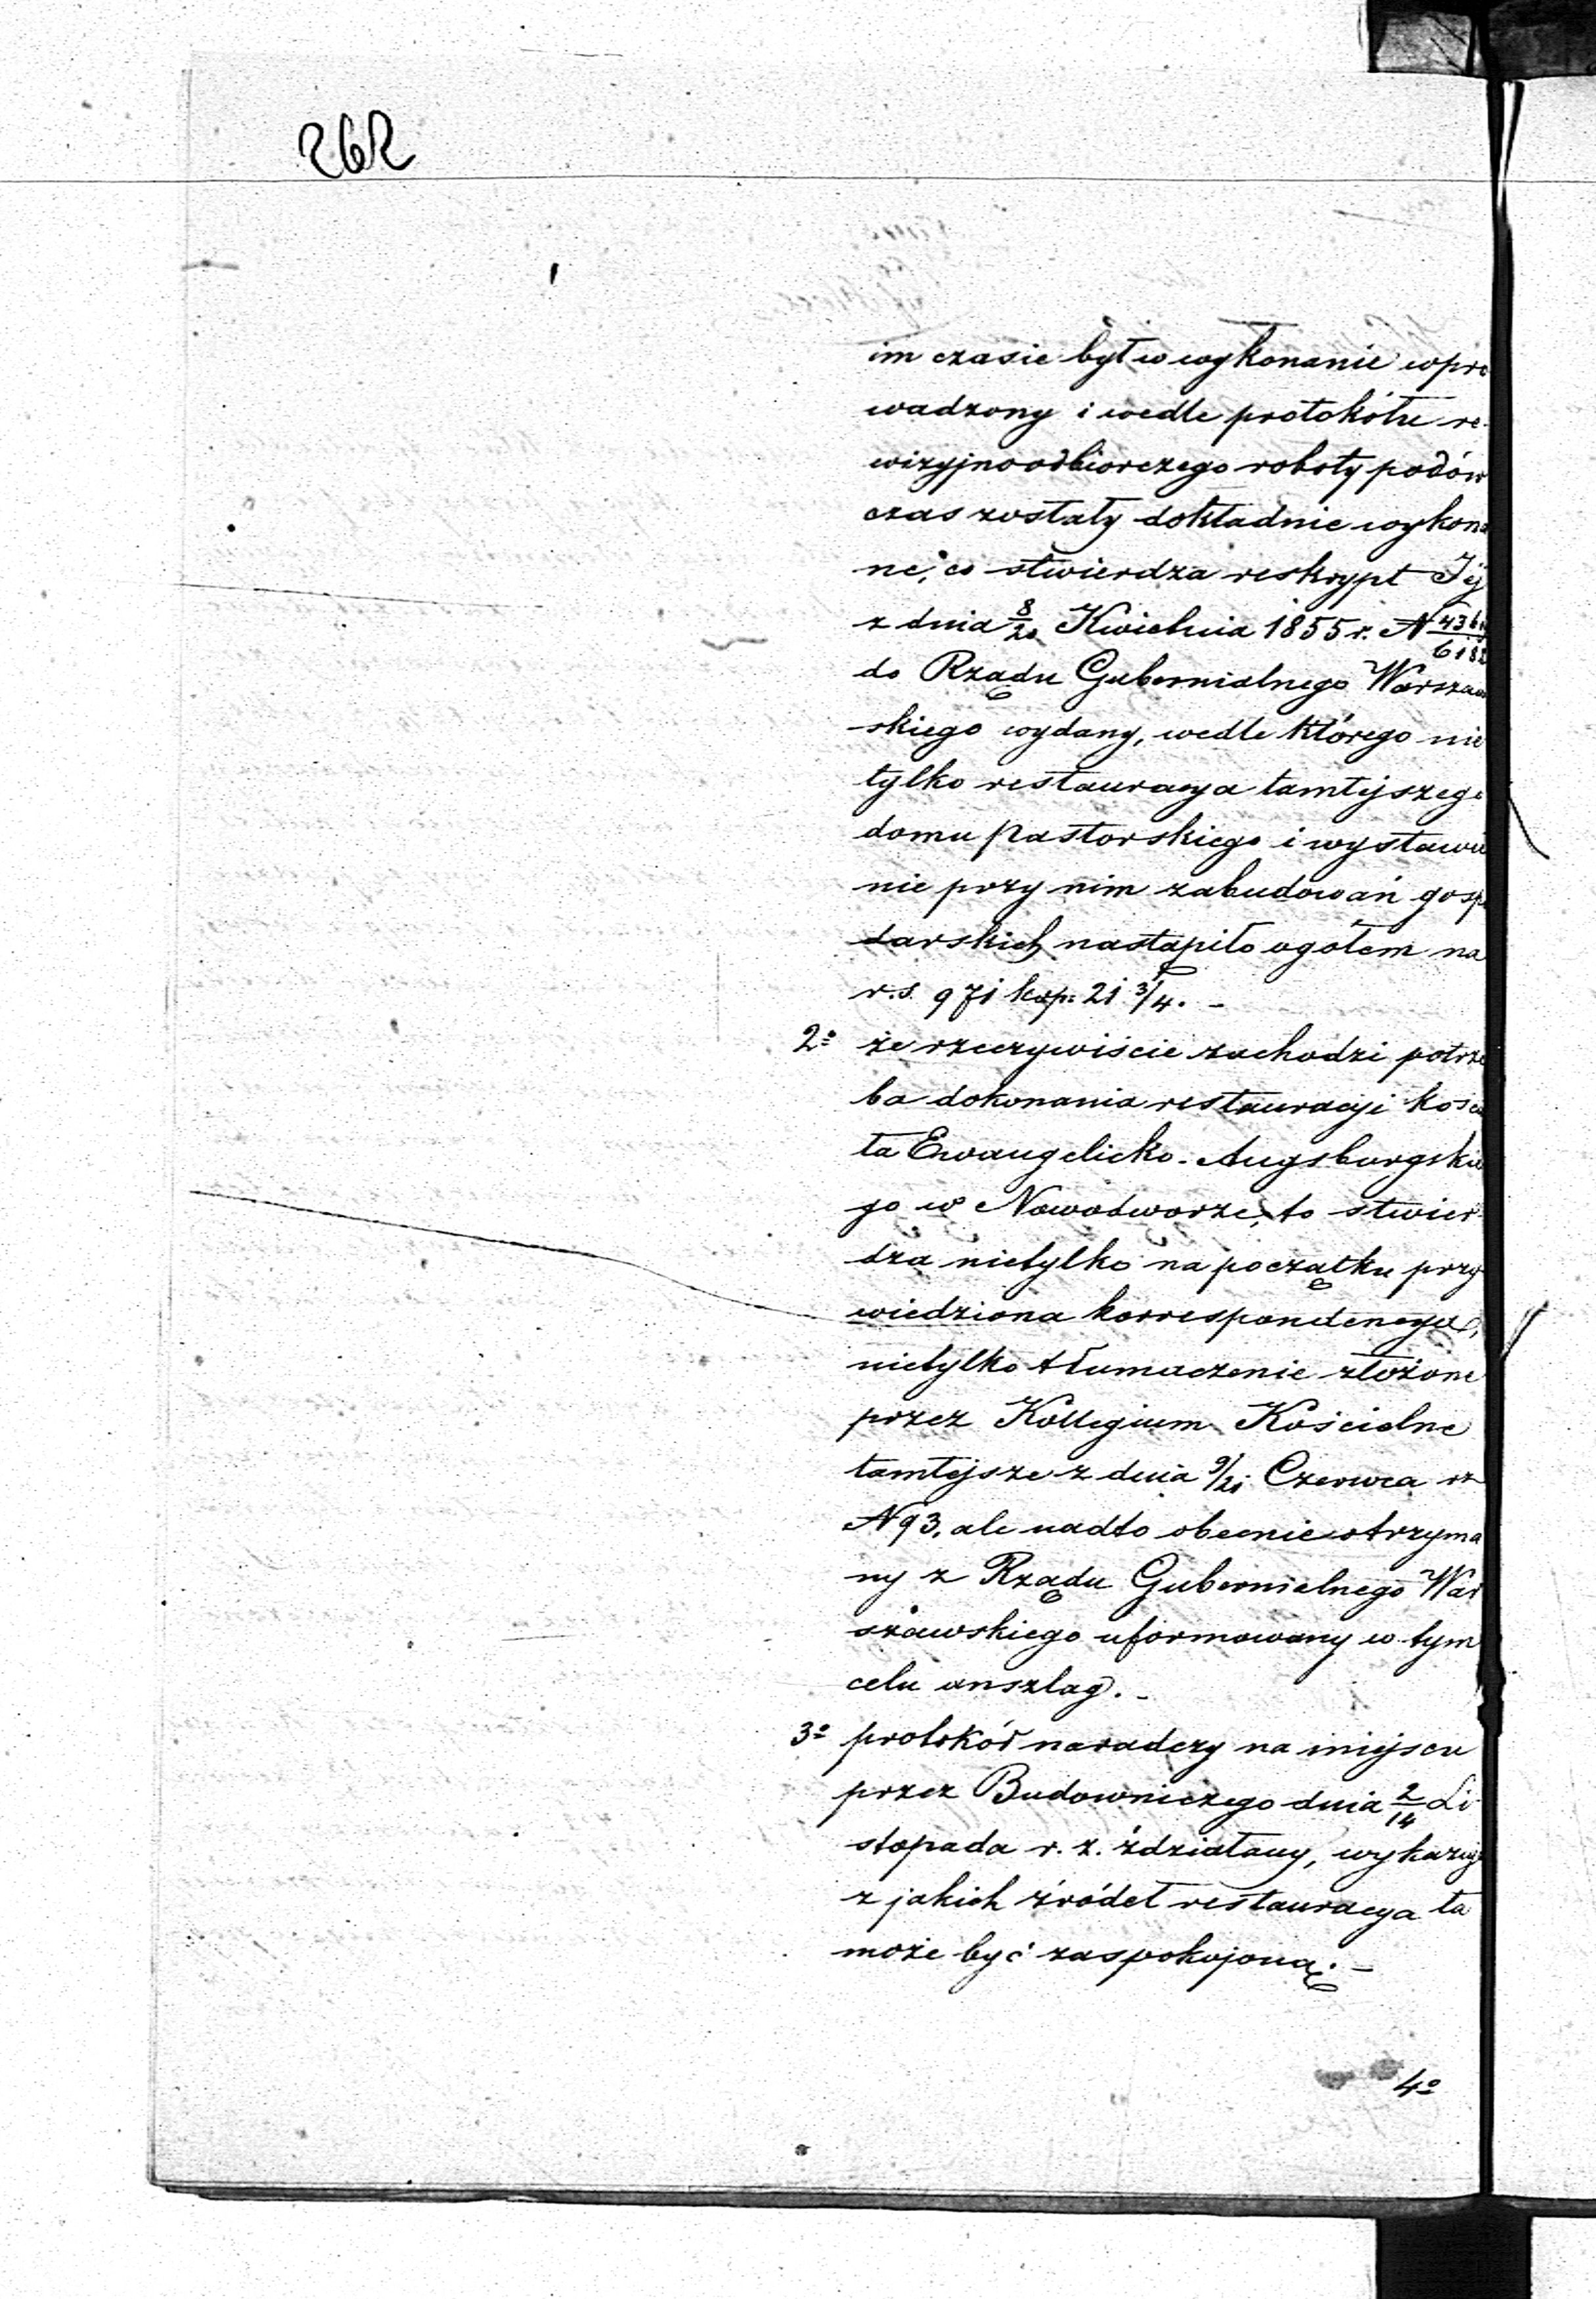 262
im czasie był w wykonanie wpro
wadzony i wedle protokółu re-
wizyjno odbiorczego roboty podów
czas zostały dokładnie wykona
ne, co stwierdza reskrypt Jéj
z dnia 8/20 Kwietnia 1855 r. N
do Rządu Gubernialnego Warszaw
skiego wydany, wedle którego nie
tylko restauracya tamtéjszego
domu Pastorskiego i wystawie
nie przy nim zabudowań gospo
darskich nastąpiło ogółem na
r.s. 971 kop. 21 3/4. -
2o że rzeczywiście zachodzi potrze
ba dokonania restauracyi kości
ła Ewangelicko-Augsburgskie
go w Nowodworze, to stwier
dza nietylko na początku przy
wiedziona korrespondencya,
nietylko tłumaczenie złożone
przez Kollegium Kościelne
tamtejsze z dnia 9/21 Czerwca rz
N 93, ale nadto obecnie otrzyma
ny z Rządu Gubernialnego War
szawskiego uformowany w tym
celu anszlag. -
3o protokół naradczy na miejscu
przez Budowniczego dnia 2/14 Li
stopada r. z. zdziałany, wykazuje
z jakich źródeł restauracya ta
może być zaspokojoną. -
4o